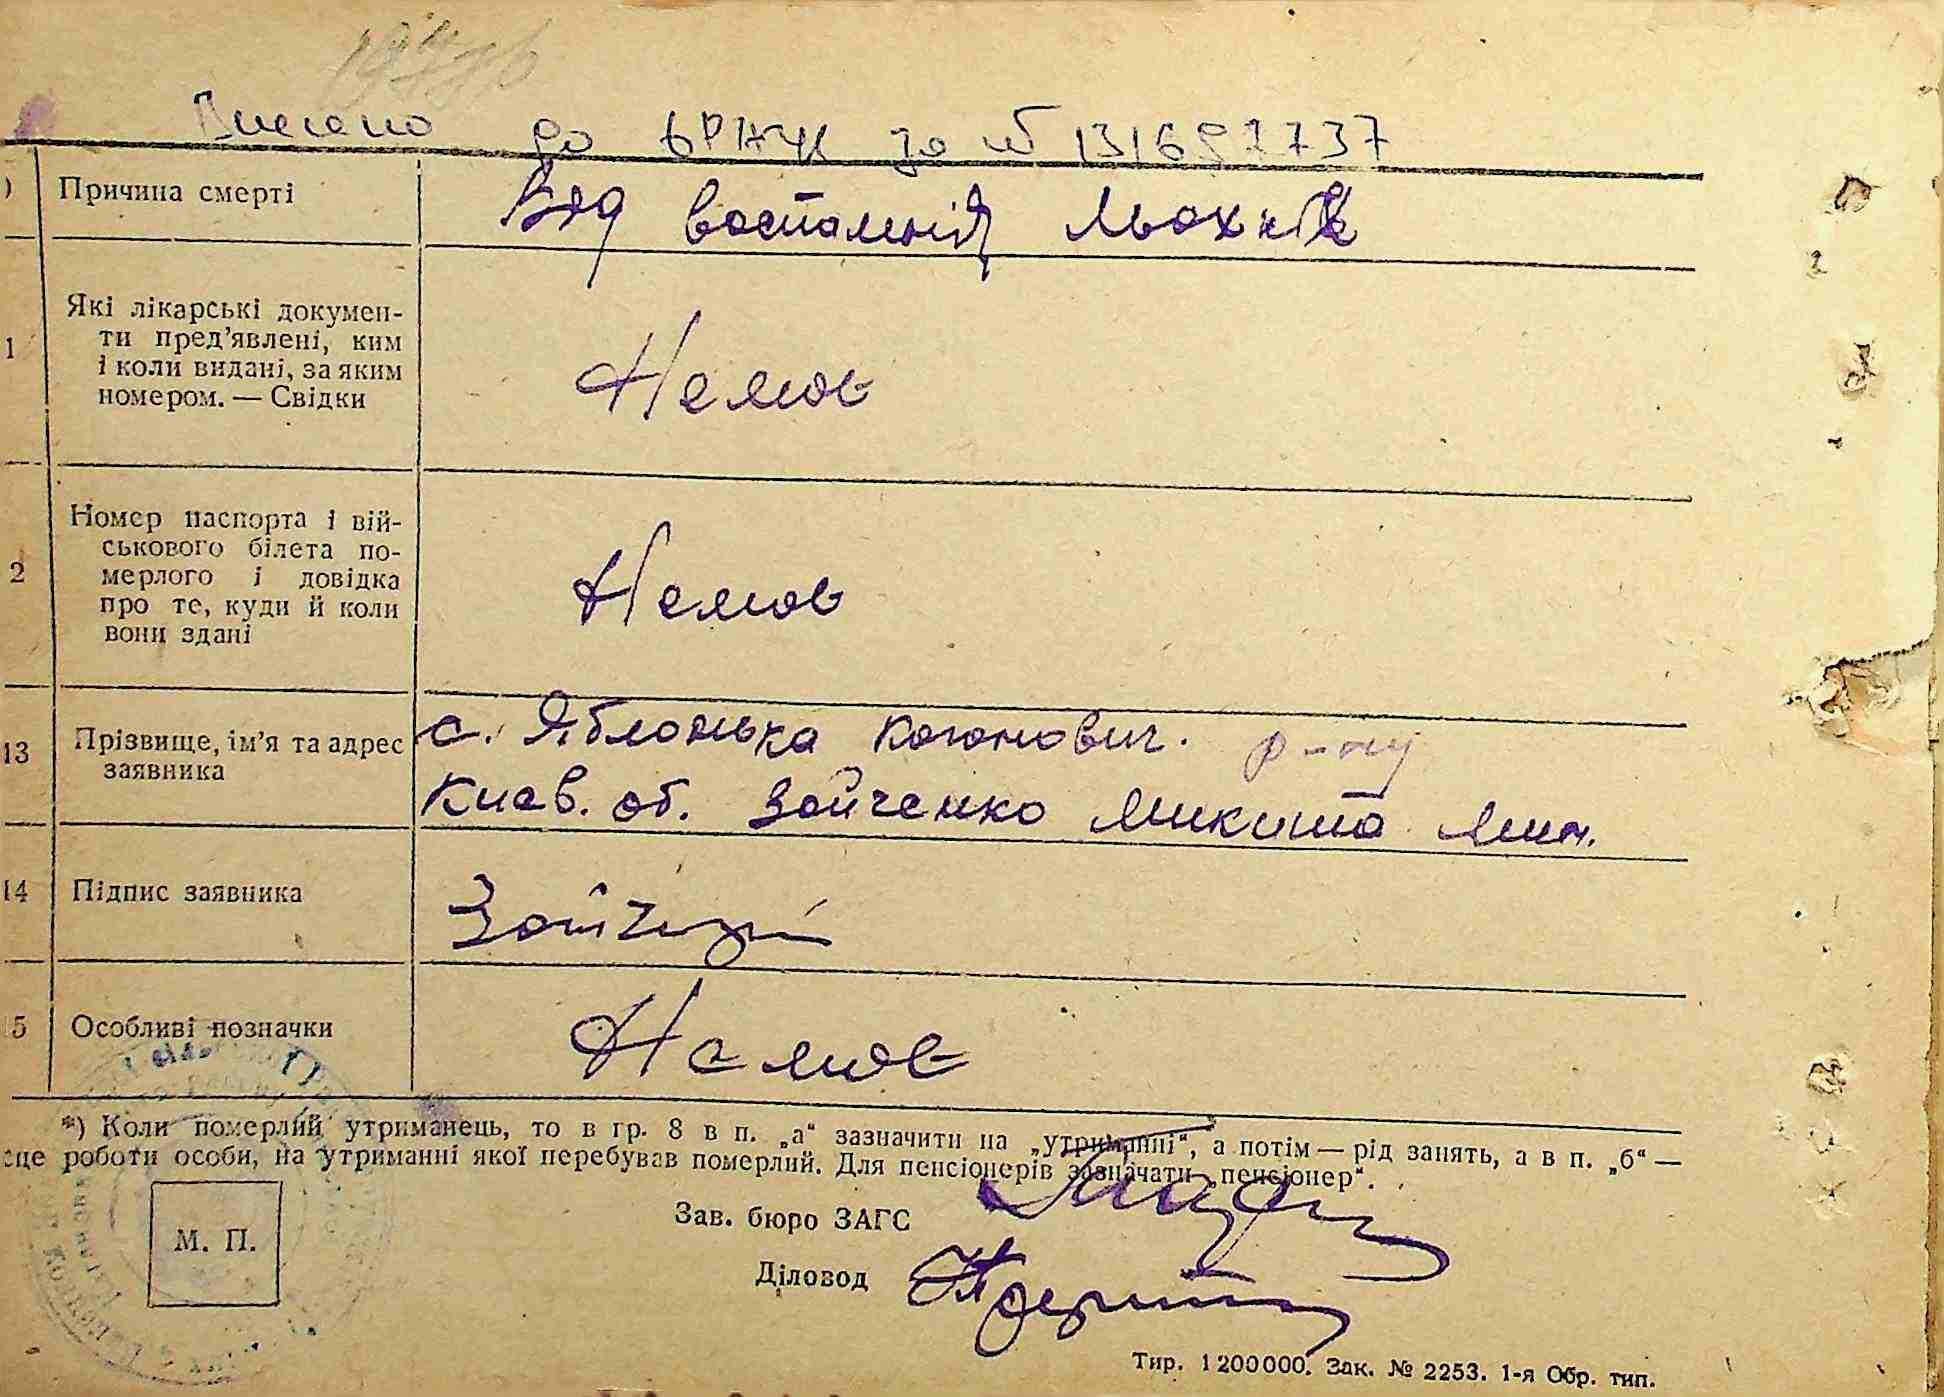 Внесено до ЕРНЧК за № 131692737
) Причина смерті Від воспаленія льохких
1 Які лікарські докумен-
ти пред'явлені, ким
і коли видані, за яким
номером. — Свідки
Немає
2 Номер паспорта і вій-
ськового білета по-
мерлого і довідка
про те, куди й коли
вони здані
Немає
13 Прізвище, ім'я та адрес
заявника
с. Яблонька Каганович. р-ну
Києв. об. Зайченко Микита Мин.
14 Підпис заявника
5 Особливі позначки Немає
*) Коли померлий утриманець, то в гр. 8 в п. „а“ зазначити на „утриманні“, а потім — рід занять, а в п. „б“ —
це роботи особи, на утриманні якої перебував померлий. Для пенсіонерів зазначати „пенсіонер“.
Зав. бюро ЗАГС
М. П.
Діловод
Тир. 1200000. Зак. № 2253. 1-я Обр. тип.